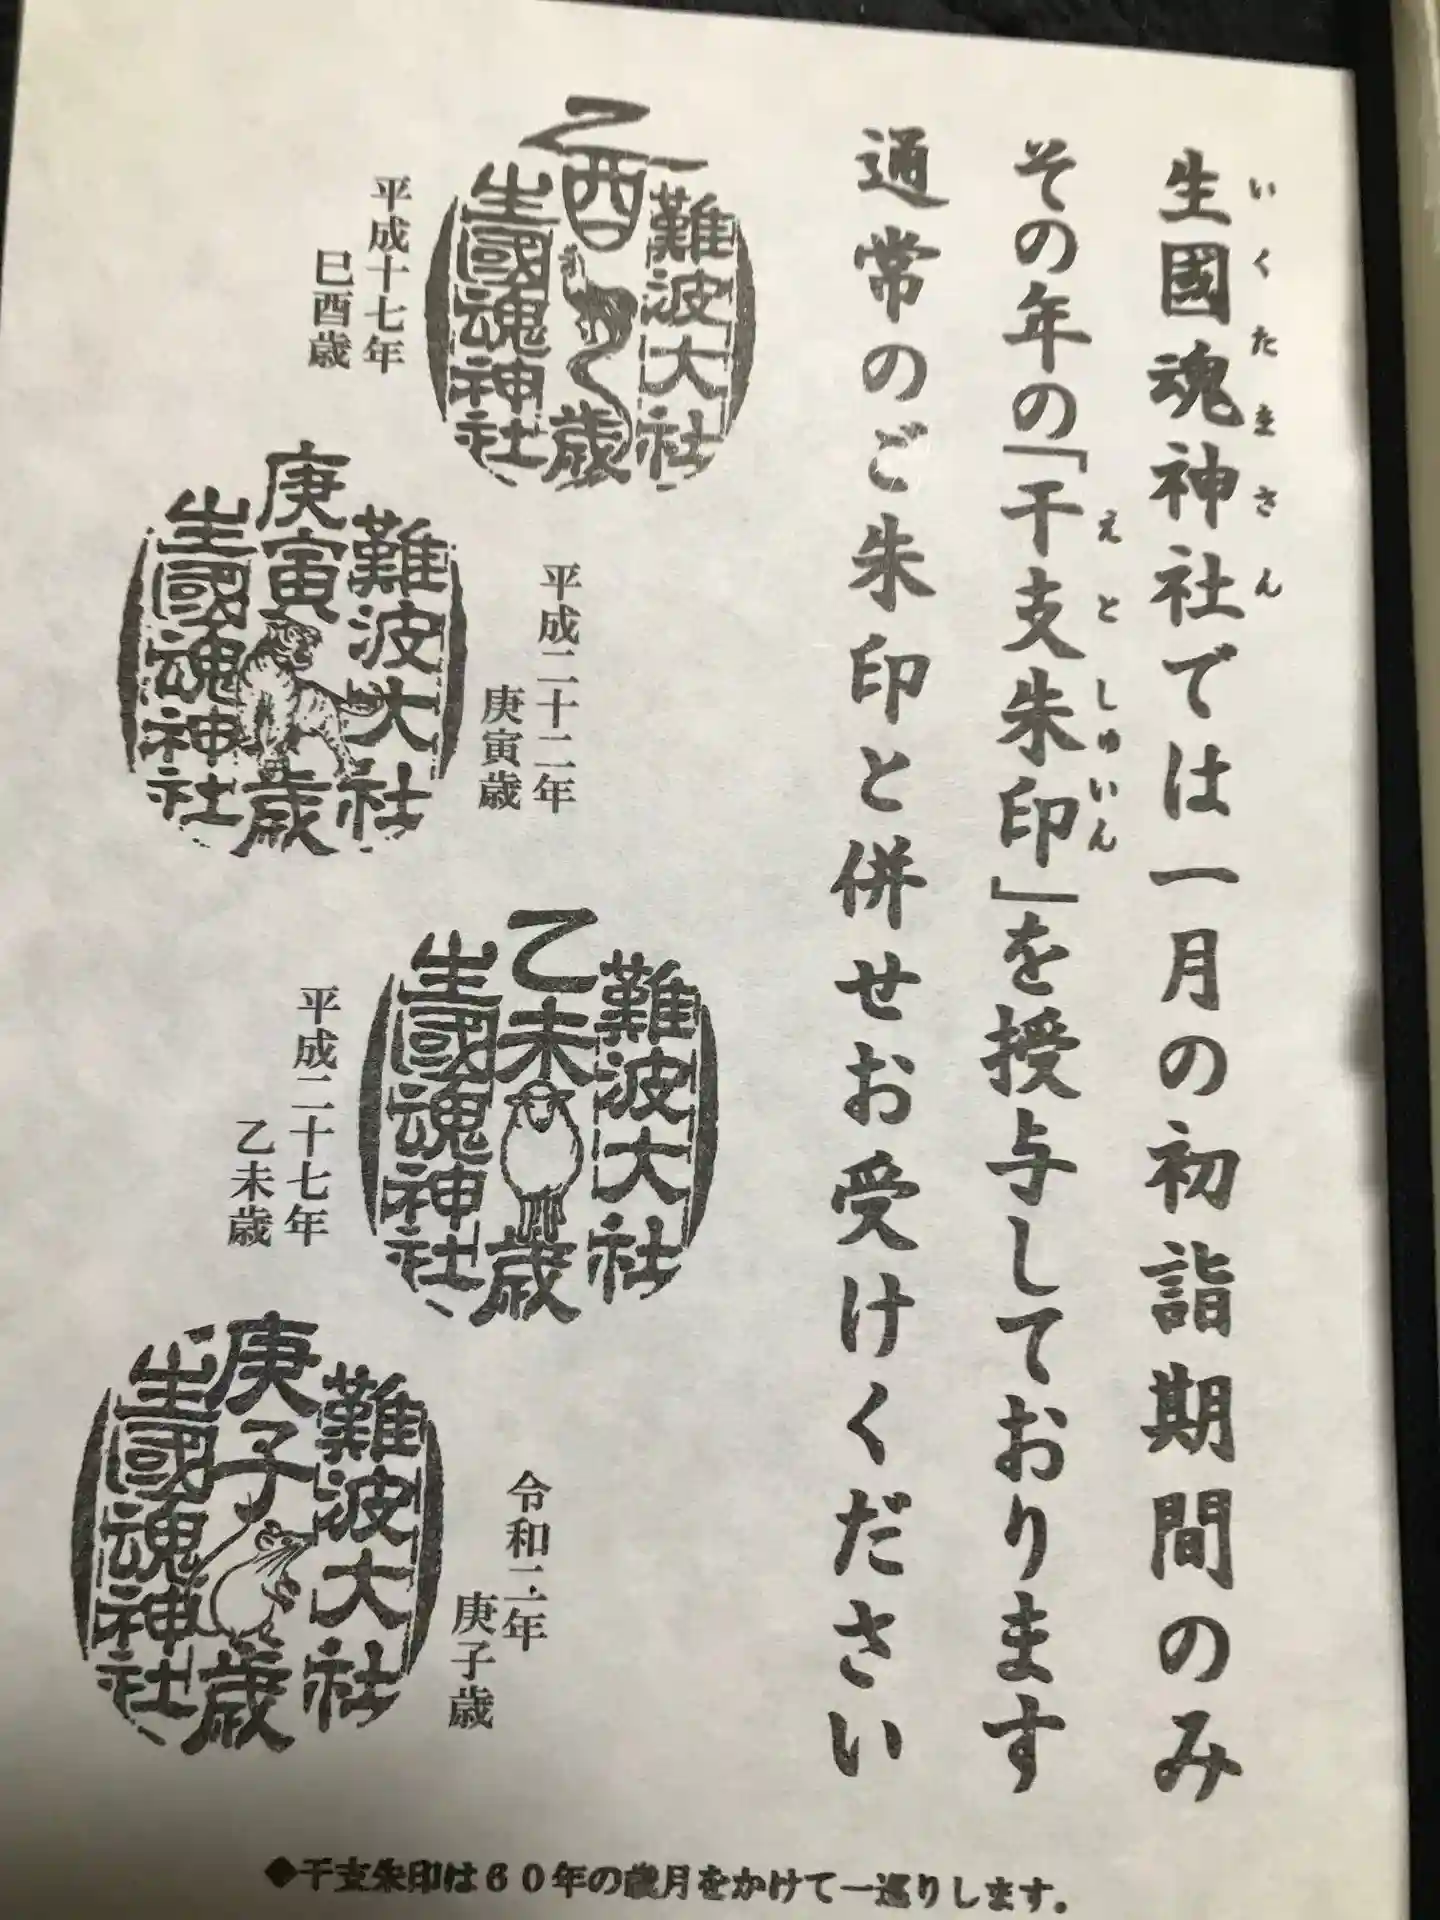 生國魂神社では一月の初詣期間のみ
いくたまさん
その年の「干支朱印」を授与しております
えとしゅいん
通常のご朱印と併せお受けください
難波大社
乙酉歳
生國魂神社
平成十七年
巳酉歳
平成二十二年
庚寅歳
難波大社
庚寅歳
生國魂神社
難波大社
乙未歳
生國魂神社
平成二十七年
乙未歳
令和二年
庚子歳
難波大社
庚子歳
生國魂神社
◆干支朱印は60年の歳月をかけて一巡りします。